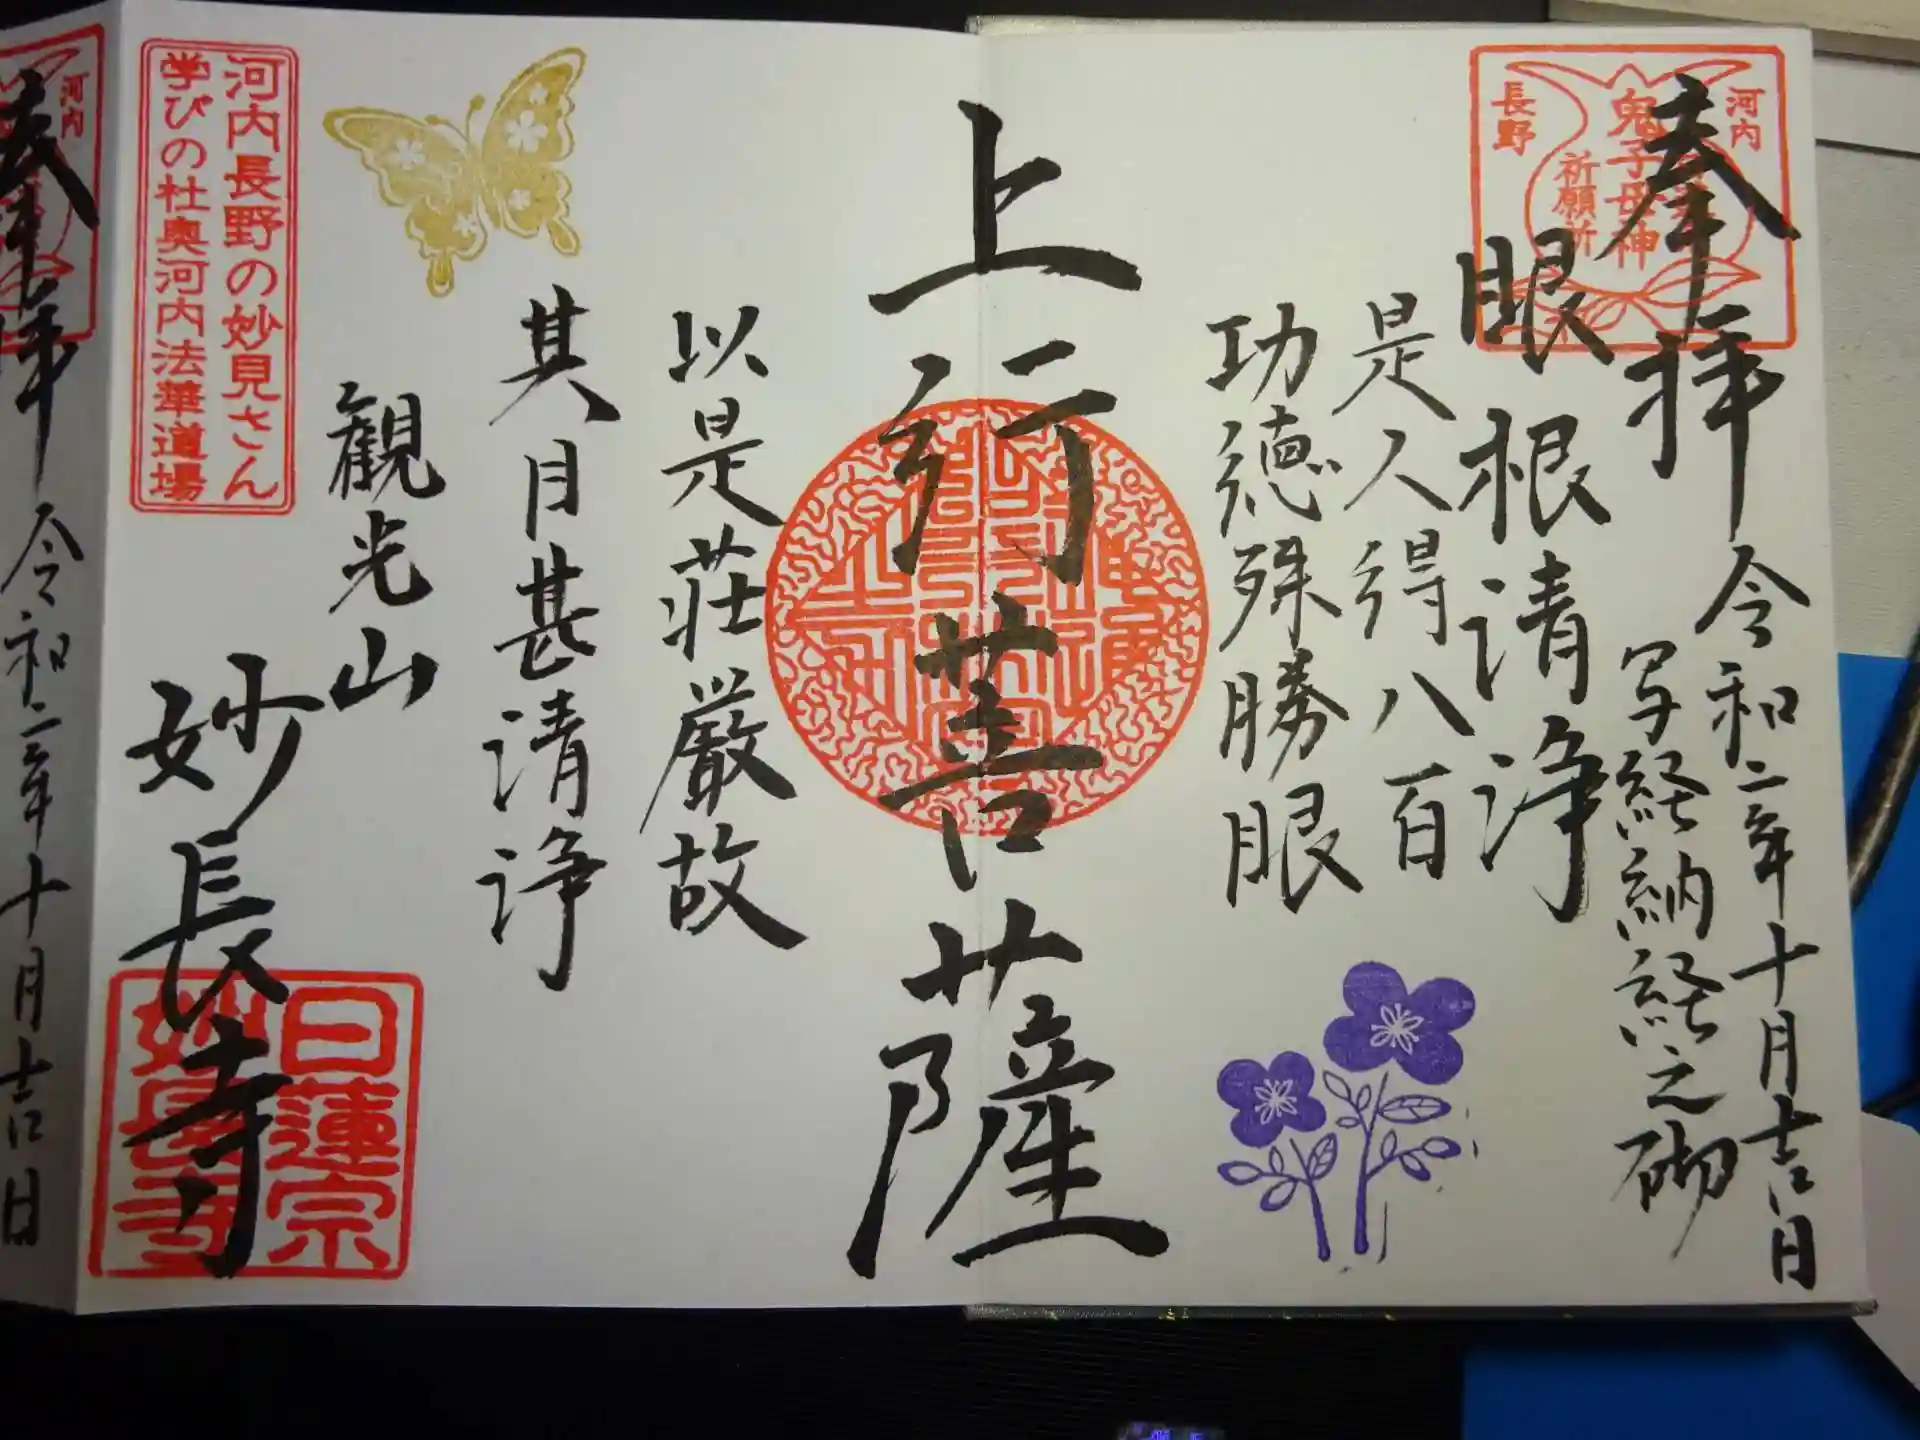 奉拝
令和二年十月吉日
写経納経之砌
河内
長野
鬼子母神
祈願所
眼根清浄
是人得八百
功徳殊勝眼
上行菩薩
以是荘厳故
其目甚清浄
観光山
妙長寺
日蓮宗
妙長寺
河内長野の妙見さん
学びの杜奥河内法華道場
河内
奉拝
令和二年十月吉日